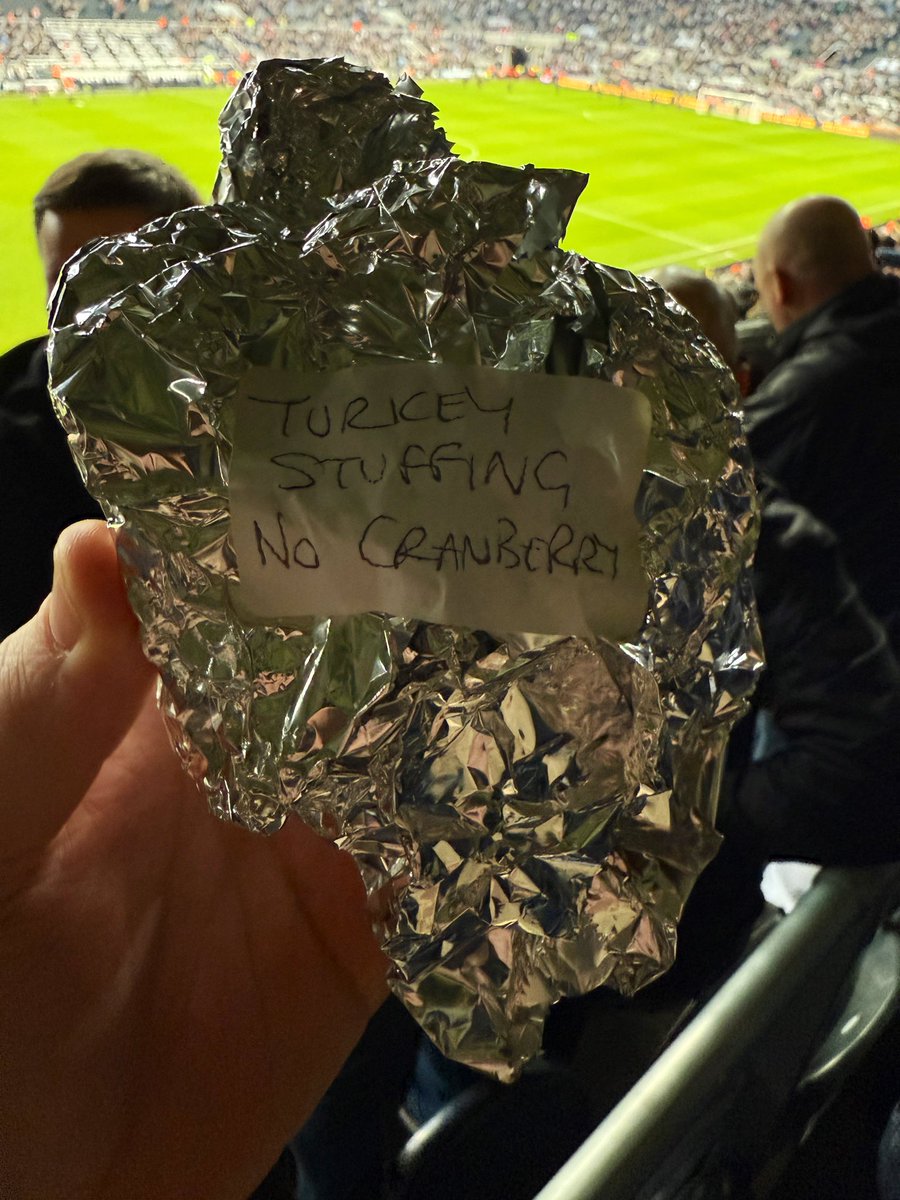 TURKEY
STUFFING
NO CRANBERRY